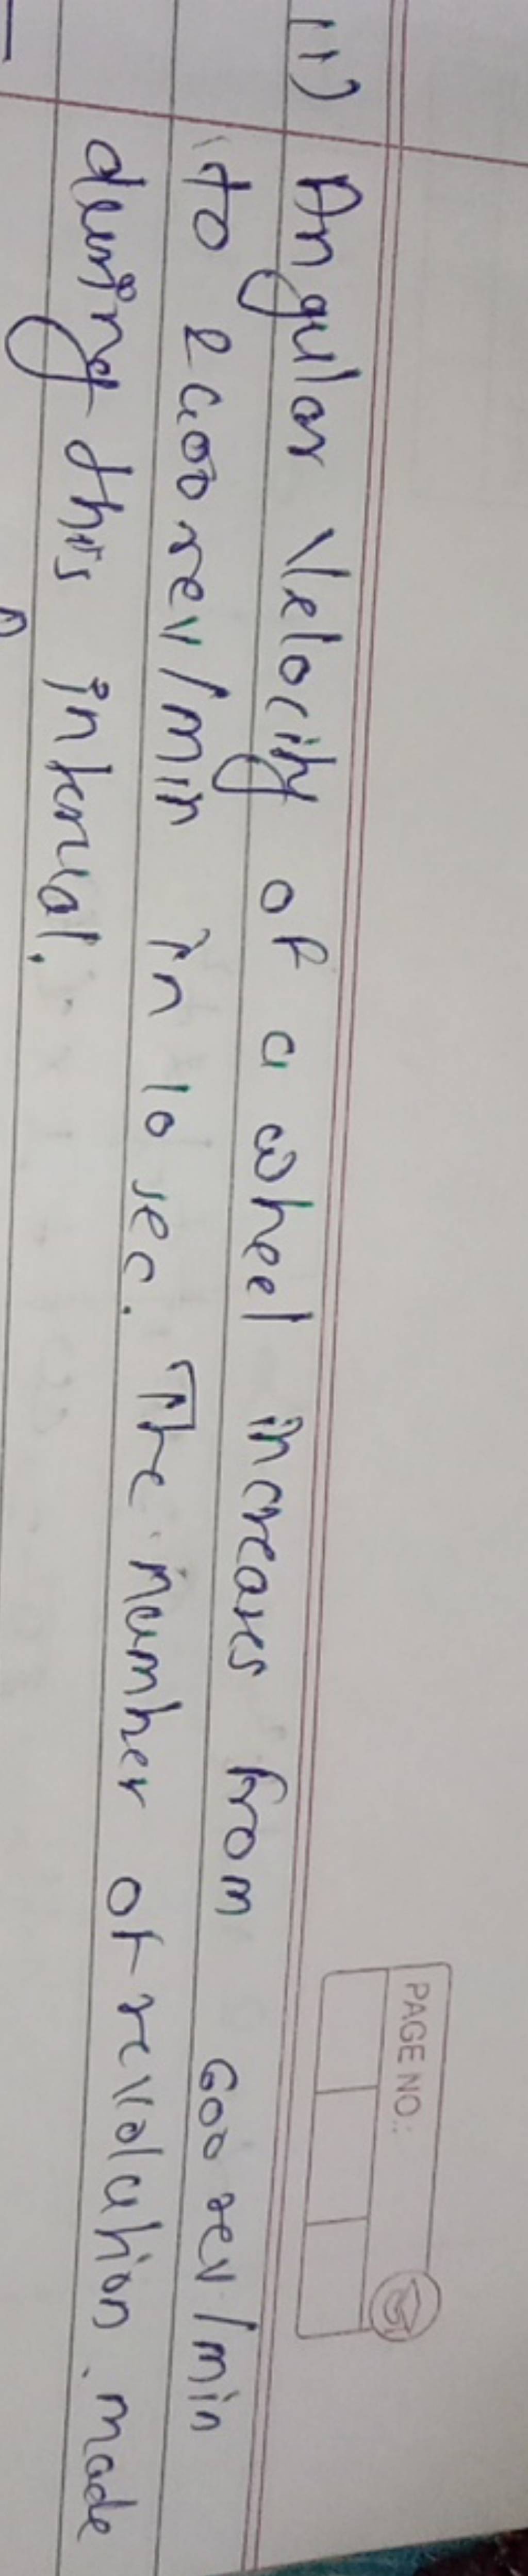 PAGE NO.:
11) Angular Velocity of a wheel increases from 600 rev/min
to 2400 rev/min in 10 sec. The number of revolution made
during this interval.